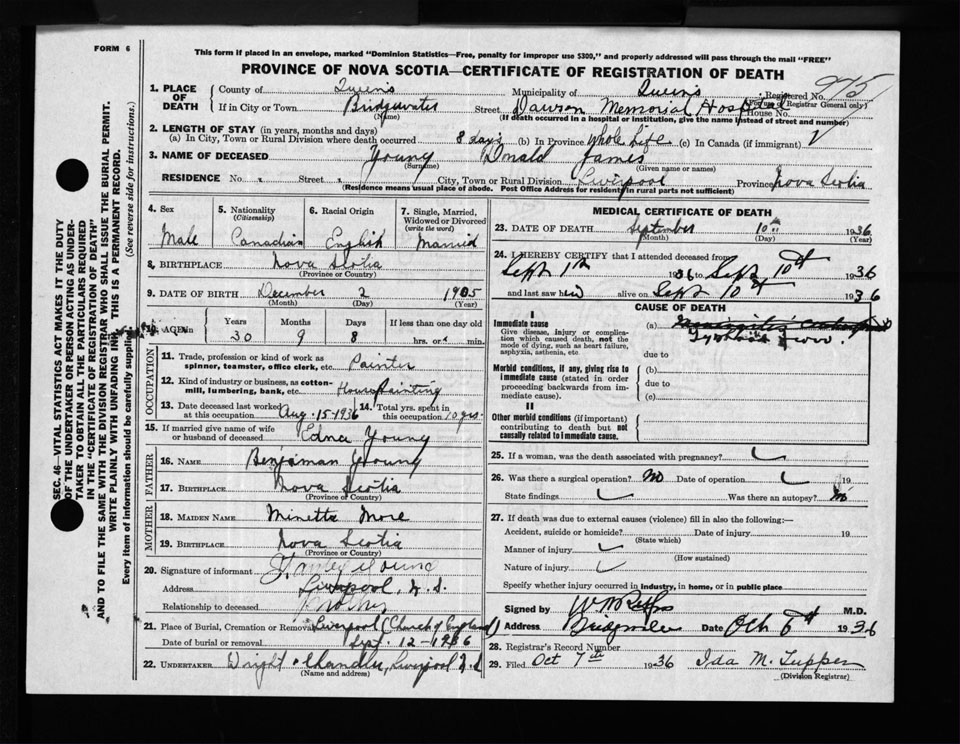 FORM 6
This form if placed in an envelope, marked "Dominion Statistics—Free, penalty for improper use $300," and properly addressed will pass through the mail "FREE"
PROVINCE OF NOVA SCOTIA—CERTIFICATE OF REGISTRATION OF DEATH
1. PLACE OF DEATH
County of Queens Municipality of Queens Registered No. 275
(For use of Registrar General only)
If in City or Town Bridgewater Street Dawson Memorial Hospital House No.
(Name) (If death occurred in a hospital or institution, give the name instead of street and number)
2. LENGTH OF STAY (in years, months and days)
(a) In City, Town or Rural Division where death occurred 8 days (b) In Province Whole Life (c) In Canada (if immigrant)
3. NAME OF DECEASED Young Donald James
(Surname) (Given name or names)
RESIDENCE No. Street City, Town or Rural Division Liverpool Province Nova Scotia
(Residence means usual place of abode. Post Office Address for residents in rural parts not sufficient)
4. Sex Male
5. Nationality (Citizenship) Canadian
6. Racial Origin English
7. Single, Married, Widowed or Divorced (write the word) Married
8. BIRTHPLACE Nova Scotia
(Province or Country)
9. DATE OF BIRTH December 2 1905
(Month) (Day) (Year)
10. AGE IN Years Months Days If less than one day old
30 9 8 hrs. or min.
OCCUPATION
11. Trade, profession or kind of work as spinner, teamster, office clerk, etc. Painter
12. Kind of industry or business, as cotton-mill, lumbering, bank, etc. House Painting
13. Date deceased last worked at this occupation Aug. 15-1936 14. Total yrs. spent in this occupation 10 yrs.
15. If married give name of wife or husband of deceased Edna Young
FATHER
16. NAME Benjaman Young
17. BIRTHPLACE Nova Scotia
(Province or Country)
MOTHER
18. MAIDEN NAME Minetta More
19. BIRTHPLACE Nova Scotia
(Province or Country)
20. Signature of informant Stanley Young
Address Liverpool, N.S.
Relationship to deceased Brother
21. Place of Burial, Cremation or Removal Liverpool (Church of England)
Date of burial or removal Sept. 12-1936
22. UNDERTAKER Wright & Chandler, Liverpool N.S
(Name and address)
MEDICAL CERTIFICATE OF DEATH
23. DATE OF DEATH September 10th 1936
(Month) (Day) (Year)
24. I HEREBY CERTIFY that I attended deceased from
Sept 1st 1936 to Sept 10th 1936
and last saw him alive on Sept 10th 1936
CAUSE OF DEATH
I
Immediate cause
Give disease, injury or complication which caused death, not the mode of dying, such as heart failure, asphyxia, asthenia, etc
(a) Typhoid Fever.
due to
Morbid conditions, if any, giving rise to immediate cause (stated in order proceeding backwards from immediate cause).
(b)
due to
(c)
II
Other morbid conditions (if important) contributing to death but not causally related to immediate cause.
25. If a woman, was the death associated with pregnancy?
26. Was there a surgical operation? No Date of operation 19
State findings Was there an autopsy? No
27. If death was due to external causes (violence) fill in also the following:—
Accident, suicide or homicide? Date of injury 19
(State which)
Manner of injury
(How sustained)
Nature of injury
Specify whether injury occurred in industry, in home, or in public place
Signed by M.D.
Address Bridgewater Date Oct 6th 1936
28. Registrar's Record Number
29. Filed Oct 7th 1936 Ida M. Tupper
(Division Registrar)
SEC. 46—VITAL STATISTICS ACT MAKES IT THE DUTY
OF THE UNDERTAKER OR PERSON ACTING AS UNDERTAKER TO OBTAIN ALL THE PARTICULARS REQUIRED
IN THE "CERTIFICATE OF REGISTRATION OF DEATH"
AND TO FILE THE SAME WITH THE DIVISION REGISTRAR WHO SHALL ISSUE THE BURIAL PERMIT.
WRITE PLAINLY WITH UNFADING INK. THIS IS A PERMANENT RECORD.
Every item of information should be carefully supplied. (See reverse side for instructions.)